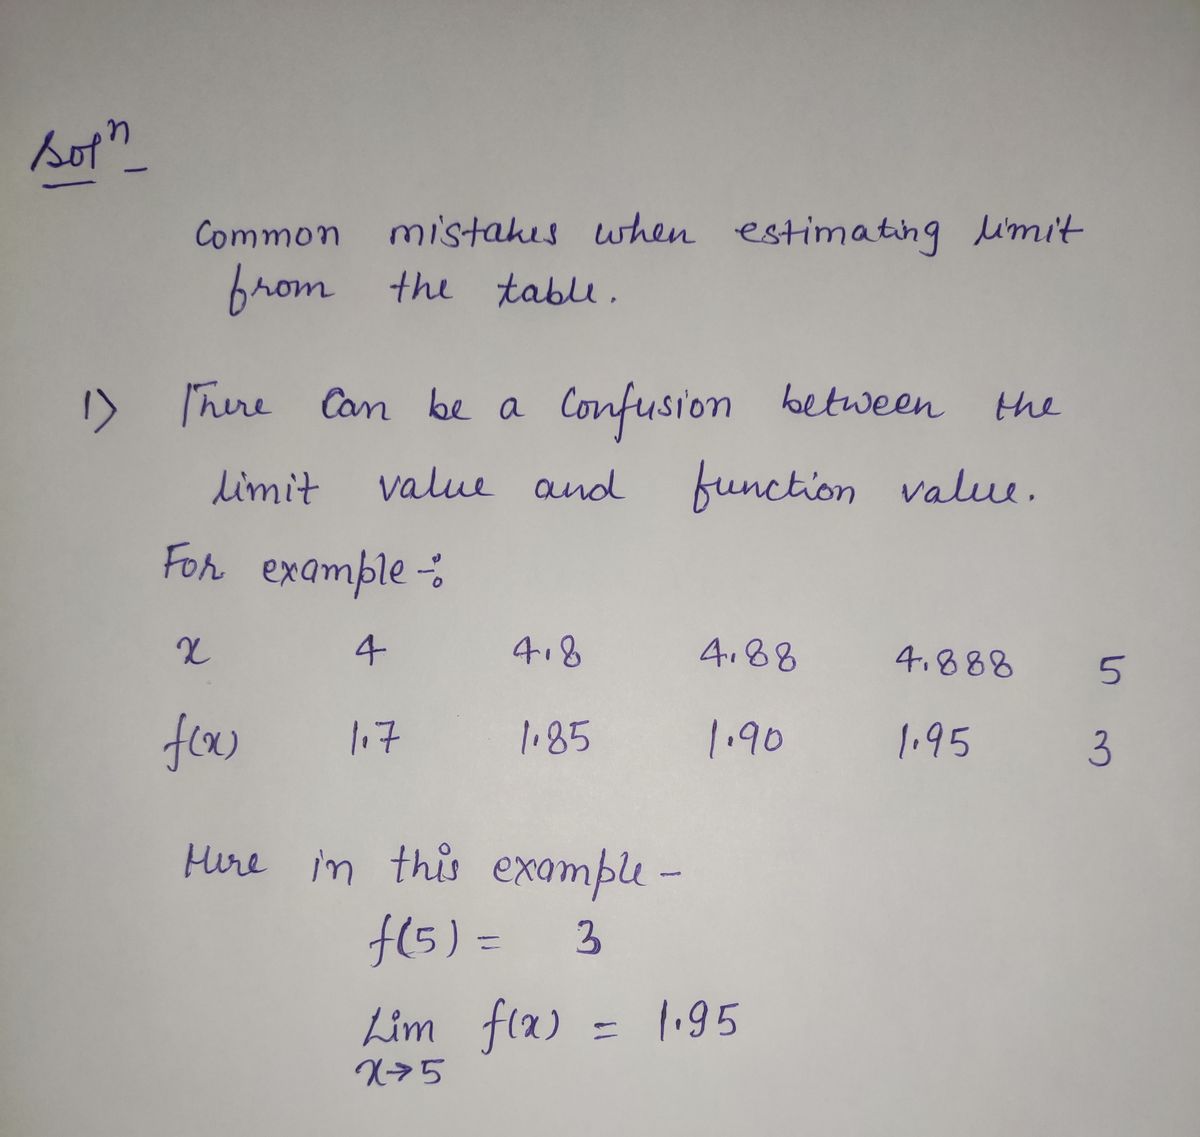 Solⁿ-
Common mistakes when estimating limit
from the table.
1) There can be a confusion between the
limit value and function value.
For example -:
x 4 4.8 4.88 4.888 5
f(x) 1.7 1.85 1.90 1.95 3
Here in this example -
f(5) = 3
Lim f(x) = 1.95
x→5